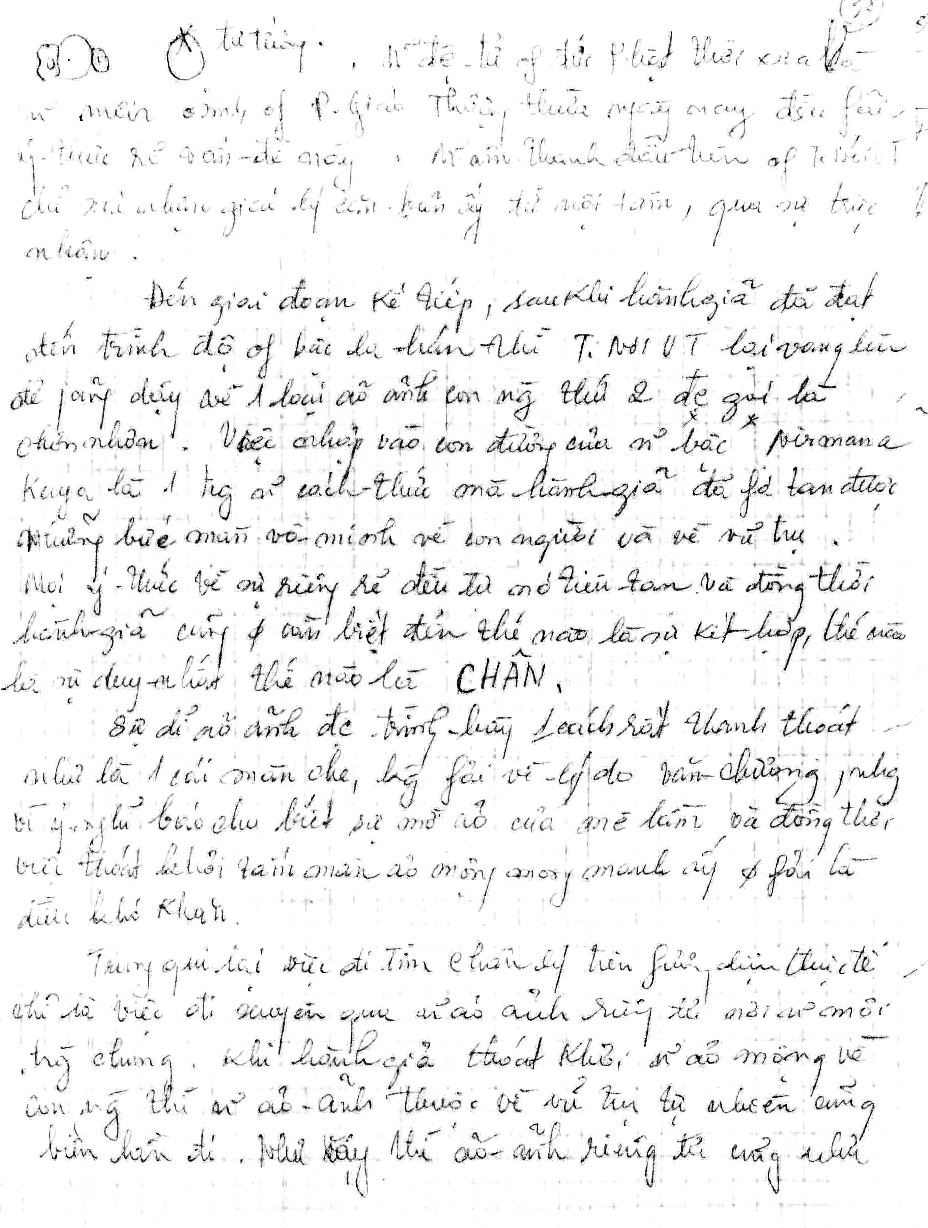 tư tưởng. N~ đệ-tử of đức Phật thời xưa
n~ môn sinh of P. Giáo Thượng thừa ngày nay đều fải
ý-thức rõ vấn-đề này. Âm-thanh đầu tiên of T. NÓI VT
chỉ xá nhận giáo lý căn-bản ấy từ nội tâm, qua sự trực
nhận.
Đến giai đoạn kế tiếp, sau khi hành giả đã đạt
đến trình độ of bậc la-hán thì T. NÓI VT lại vang lên
để jảng dạy về 1 loại ảo ảnh con ng thứ 2 đc gọi là
chơn nhơn. Việc nhập vào con đường của n~ bậc Nirmana
Kaya là 1 tg n~ cách-thức mà hành-giả đã fá tan được
những bức màn vô-minh về con người và về vũ trụ.
Mọi ý-thức về sự riêng rẽ đều từ nó tiêu tan và đồng thời
hành-giả cũng ∅ cần biết đến thế nào là sự kết-hợp, thế nào
là sự duy-nhất thế nào là CHÂN.
Sở dĩ ảo ảnh đc trình-bày 1 cách rất thanh thoát
như là 1 cái màn che, kg fải vì lý do văn-chương, nhg
vì ý-nghĩ báo cho biết sự mờ ảo của mê lầm và đồng thời
việc thoát khỏi tấm màn ảo mộng mong manh ấy ∅ fải là
điều khó khăn.
Trung qui lại việc đi tìm chân lý trên fương diện thực tế
chỉ là việc đi xuyên qua n~ ảo ảnh riêng tư nơi n~ môi
trg chung. Khi hành giả thoát khỏi n~ ảo mộng về
con ng thì n~ ảo-ảnh thuộc về vũ trụ tự nhiên cũng
biến hẳn đi. Như vậy thì ảo-ảnh riêng tư cũng như